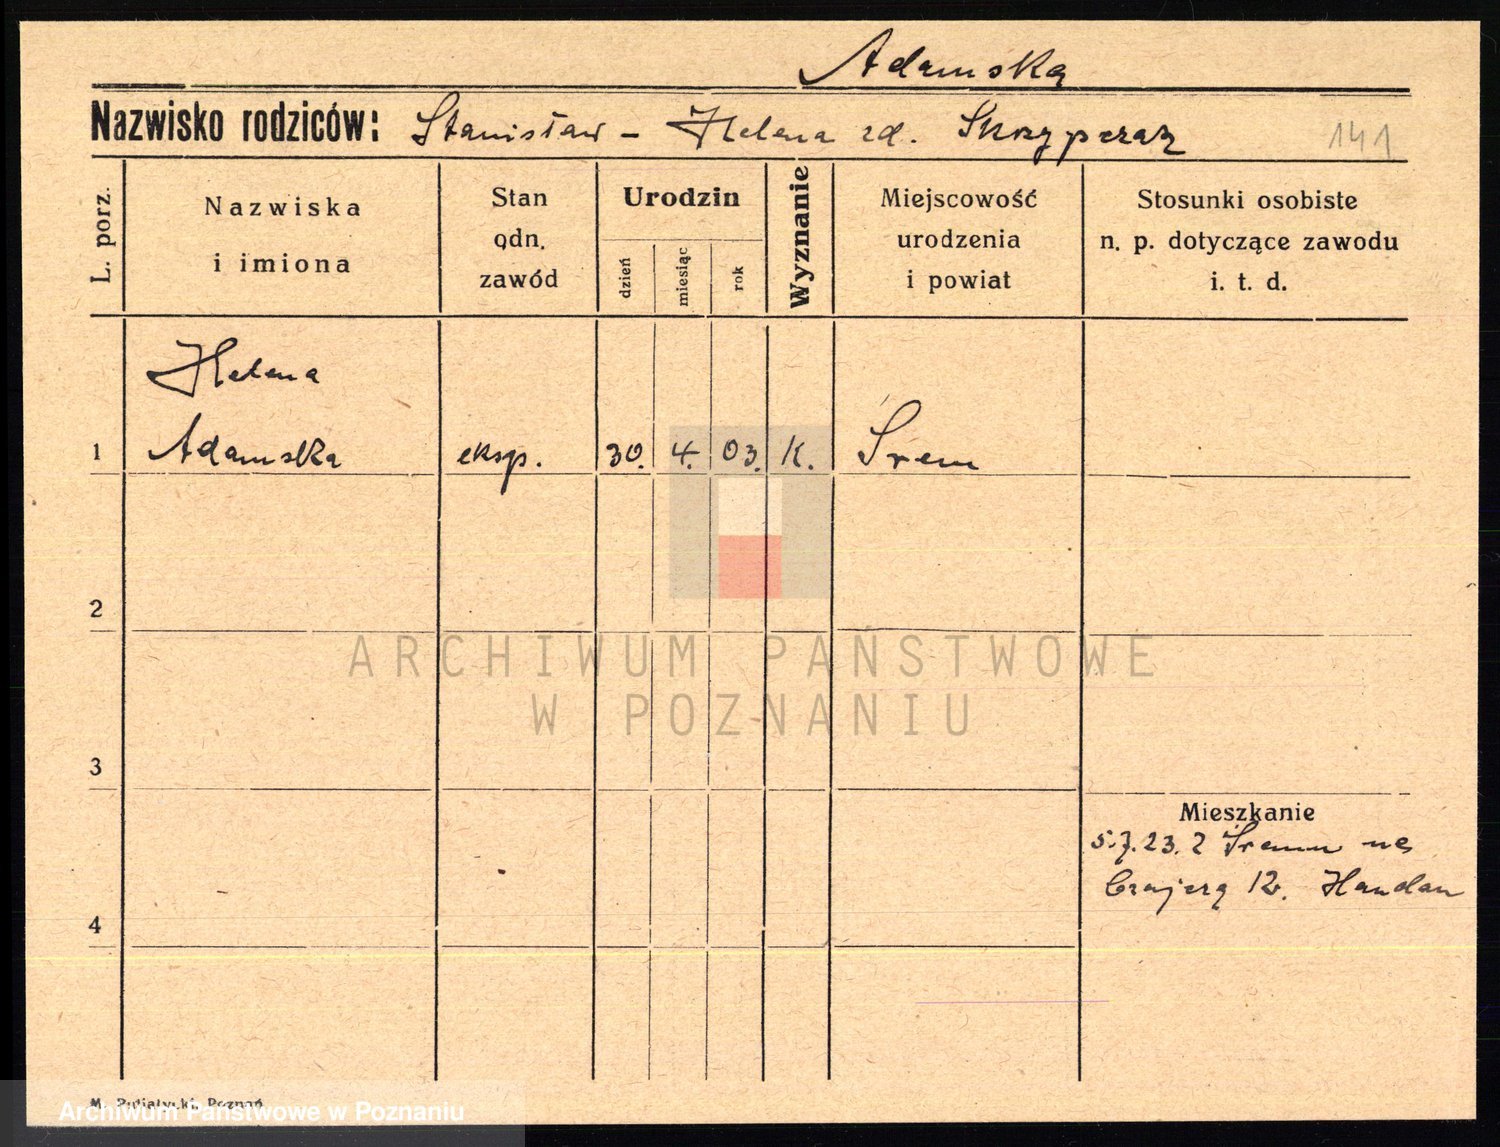 Adamska
Nazwisko rodziców: Stanisław - Helena zd. Skrzypczak
141
L. porz.
Nazwiska
i imiona
Stan
odn.
zawód
Urodzin
dzień
miesiąc
rok
Wyznanie
Miejscowość
urodzenia
i powiat
Stosunki osobiste
n. p. dotyczące zawodu
i. t. d.
Helena
1 Adamska eksp. 30. 4. 03. K. Śrem
2
ARCHIWUM PAŃSTWOWE
W POZNANIU
3
Mieszkanie
5.7.23. z Śremu na
12.
4
M. Putiatycki, Poznań
Archiwum Państwowe w Poznaniu